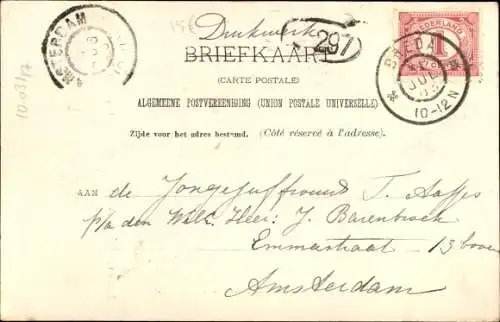 AMSTERDAM
Drukwerk
297
NEDERLAND
1
BREDA
JUL
10-12N
BRIEFKAART
(CARTE POSTALE)
ALGEMEENE POSTVEREENIGING (UNION POSTALE UNIVERSELLE)
Zijde voor het adres bestemd. (Côté réservé à l'adresse).
AAN de Jongejuffrouw T.
p/a den Heer: J. Barenbroek
Emmastraat 13 boven
Amsterdam
10.03/17